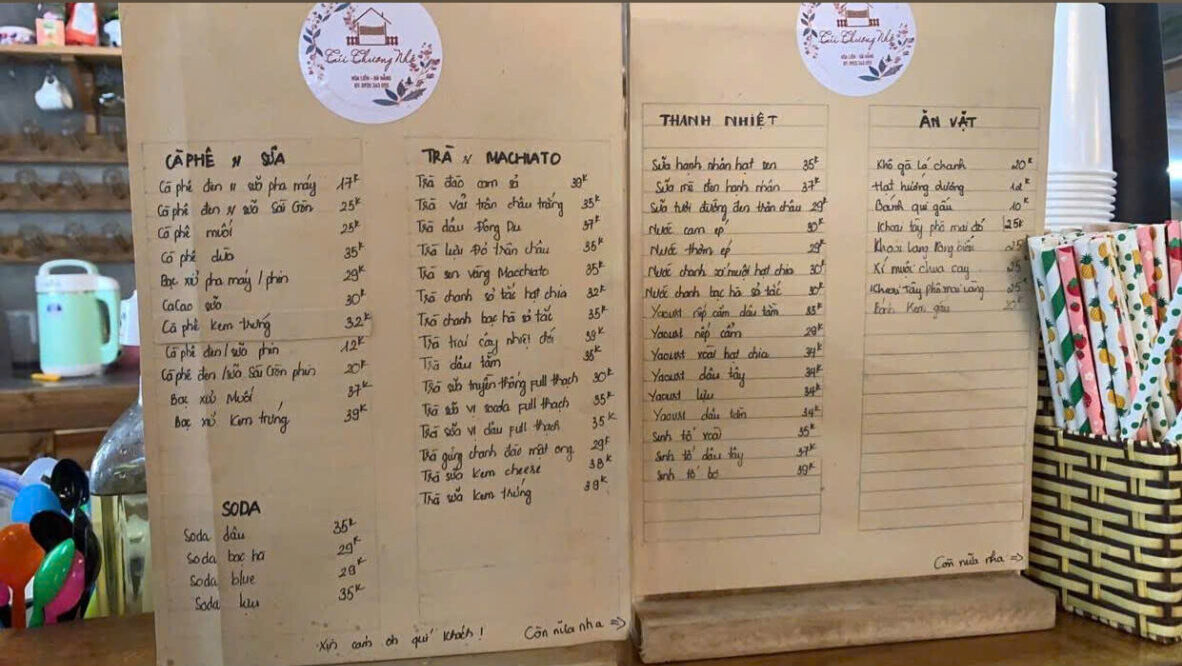 Túi Thương Nhớ
HÒA LIÊN - ĐÀ NẴNG
CÀ PHÊ N SỮA
Cà phê đen N sữa pha máy 17K
Cà phê đen N sữa Sài Gòn 25K
Cà phê muối 25K
Cà phê dừa 35K
Bạc xỉu pha máy / phin 29K
CaCao sữa 30K
Cà phê kem trứng 32K
Cà phê đen/sữa phin 12K
Cà phê đen/sữa Sài Gòn phin 20K
Bạc xỉu Muối 37K
Bạc xỉu Kem trứng 39K
SODA
Soda dâu 35K
Soda bạc hà 29K
Soda blue 29K
Soda lựu 35K
TRÀ N MACHIATO
Trà đào cam sả 39K
Trà vải trân châu trắng 35K
Trà dâu Đông Du 37K
Trà lựu Đỏ trân châu 35K
Trà sen vàng Macchiato 35K
Trà chanh sả tắc hạt chia 32K
Trà chanh bạc hà sả tắc 35K
Trà trái cây nhiệt đới 39K
Trà dâu tằm 35K
Trà sữa truyền thống full thạch 30K
Trà sữa vị soada full thạch 35K
Trà sữa vị dâu full thạch 35K
Trà gừng chanh đào mật ong 29K
Trà sữa kem cheese 38K
Trà sữa kem trứng 39K
Xin cảm ơn quí khách!
Còn nữa nha =>
Túi Thương Nhớ
HÒA LIÊN - ĐÀ NẴNG
THANH NHIỆT
Sữa hạnh nhân hạt sen 35K
Sữa mè đen hạnh nhân 37K
Sữa tươi đường đen trân châu 29K
Nước cam ép 30K
Nước thơm ép 29K
Nước chanh xí muội hạt chia 30K
Nước chanh bạc hà sả tắc 30K
Yaourt nếp cẩm dâu tằm 35K
Yaourt nếp cẩm 29K
Yaourt xoài hạt chia 34K
Yaourt dâu tây 34K
Yaourt lựu 34K
Yaourt dâu tằm 34K
Sinh tố xoài 35K
Sinh tố dâu tây 37K
Sinh tố bơ 39K
ĂN VẶT
Khô gà lá chanh 20K
Hạt hướng dương 12K
Bánh qui gấu 10K
Khoai tây phô mai đỏ 25K
Khoai lang 25K
Xí muội chua cay 25K
Khoai tây phô mai vàng 25K
Bánh kem gấu
Còn nữa nha =>